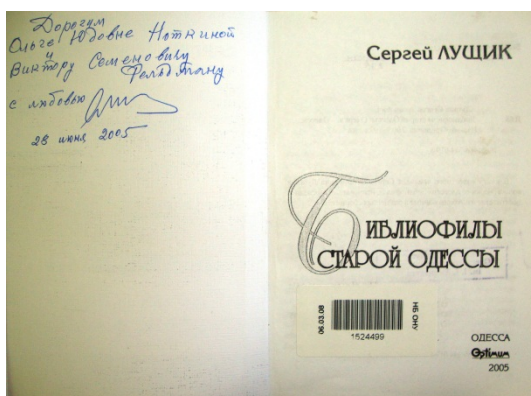 Дорогим
Ольге Юдовне Ноткиной
и
Виктору Семеновичу
Фельдману
с любовью
28 июня 2005
Сергей ЛУЩИК
БИБЛИОФИЛЫ
СТАРОЙ ОДЕССЫ
06.03.08
НБ ОНУ
1524499
ОДЕССА
Optimum
2005